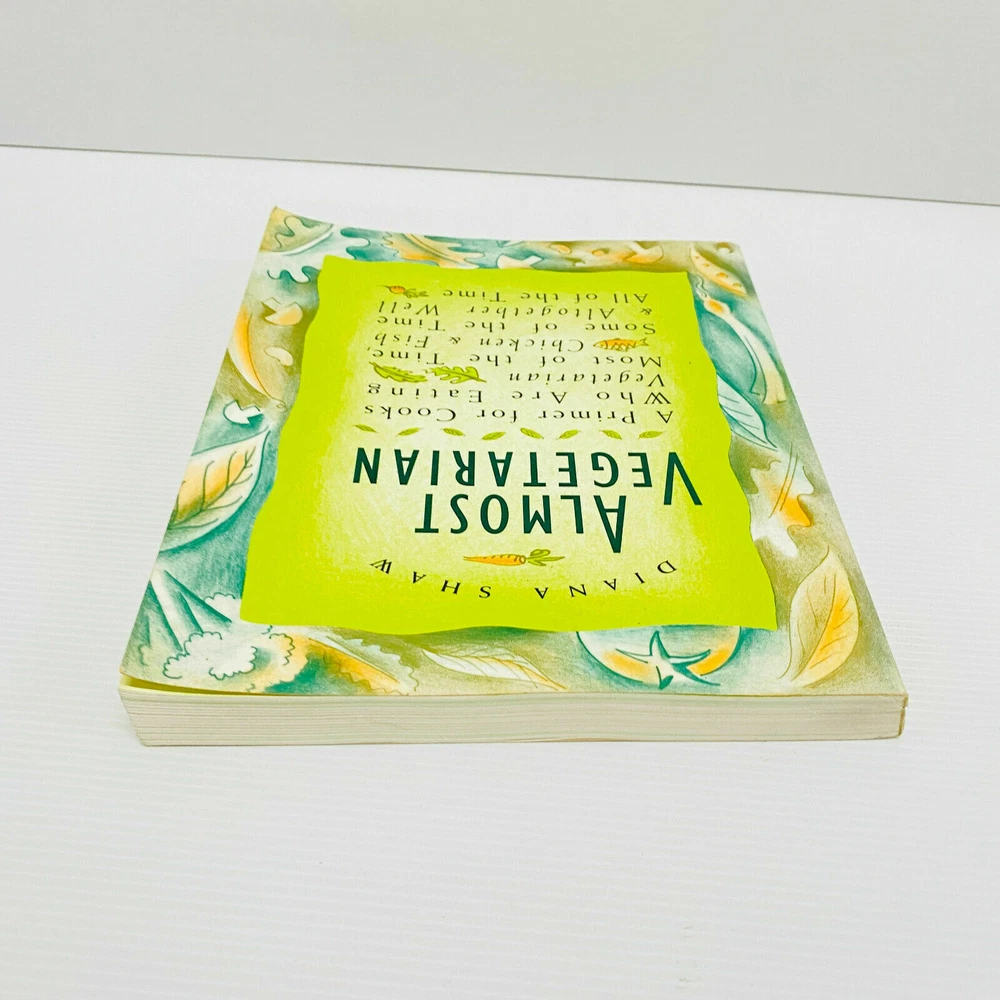 DIANA SHAW
ALMOST
VEGETARIAN
A Primer for Cooks
Who Are Eating
Vegetarian
Most of the Time,
Chicken & Fish
Some of the Time
& Altogether Well
All of the Time